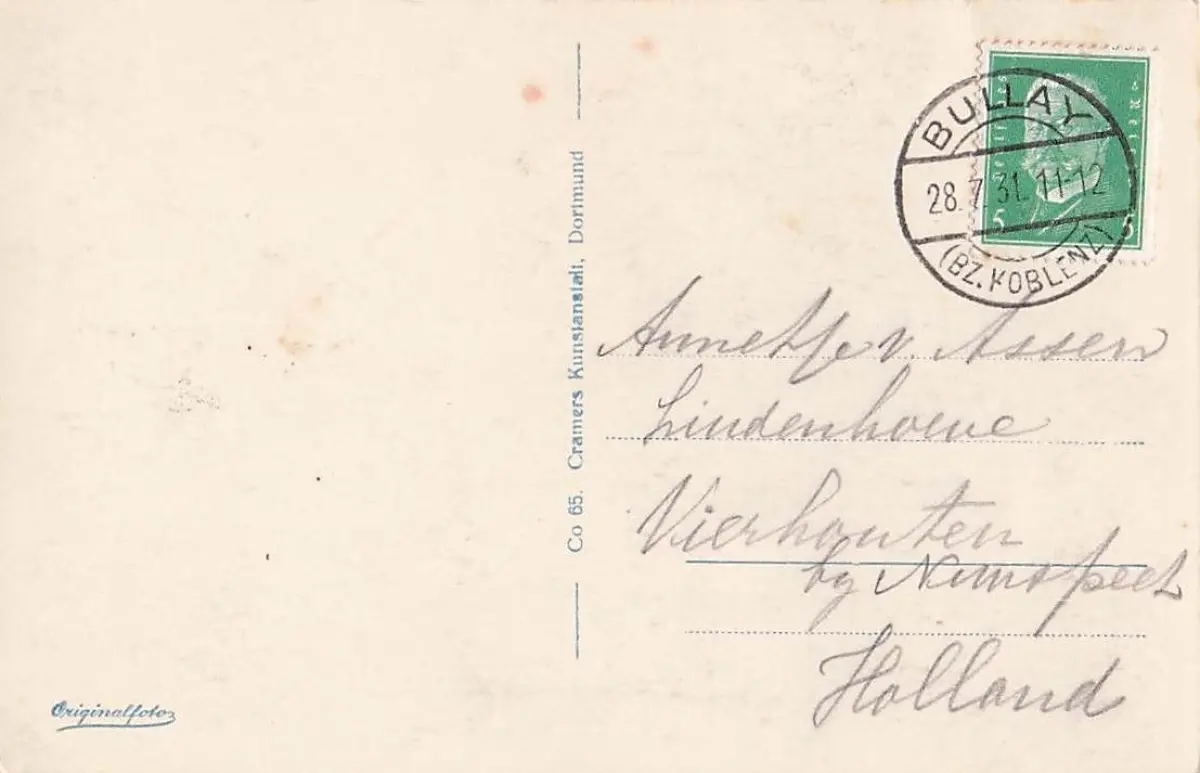 Originalfoto
Co 65. Cramers Kunstanstalt, Dortmund
Deutsches Reich
5 5
BULLAY
28.7.31. 11-12
(BZ. KOBLENZ)
Annetje v. Assen
Lindenhoeve
Vierhouten
by Nunspeet
Holland